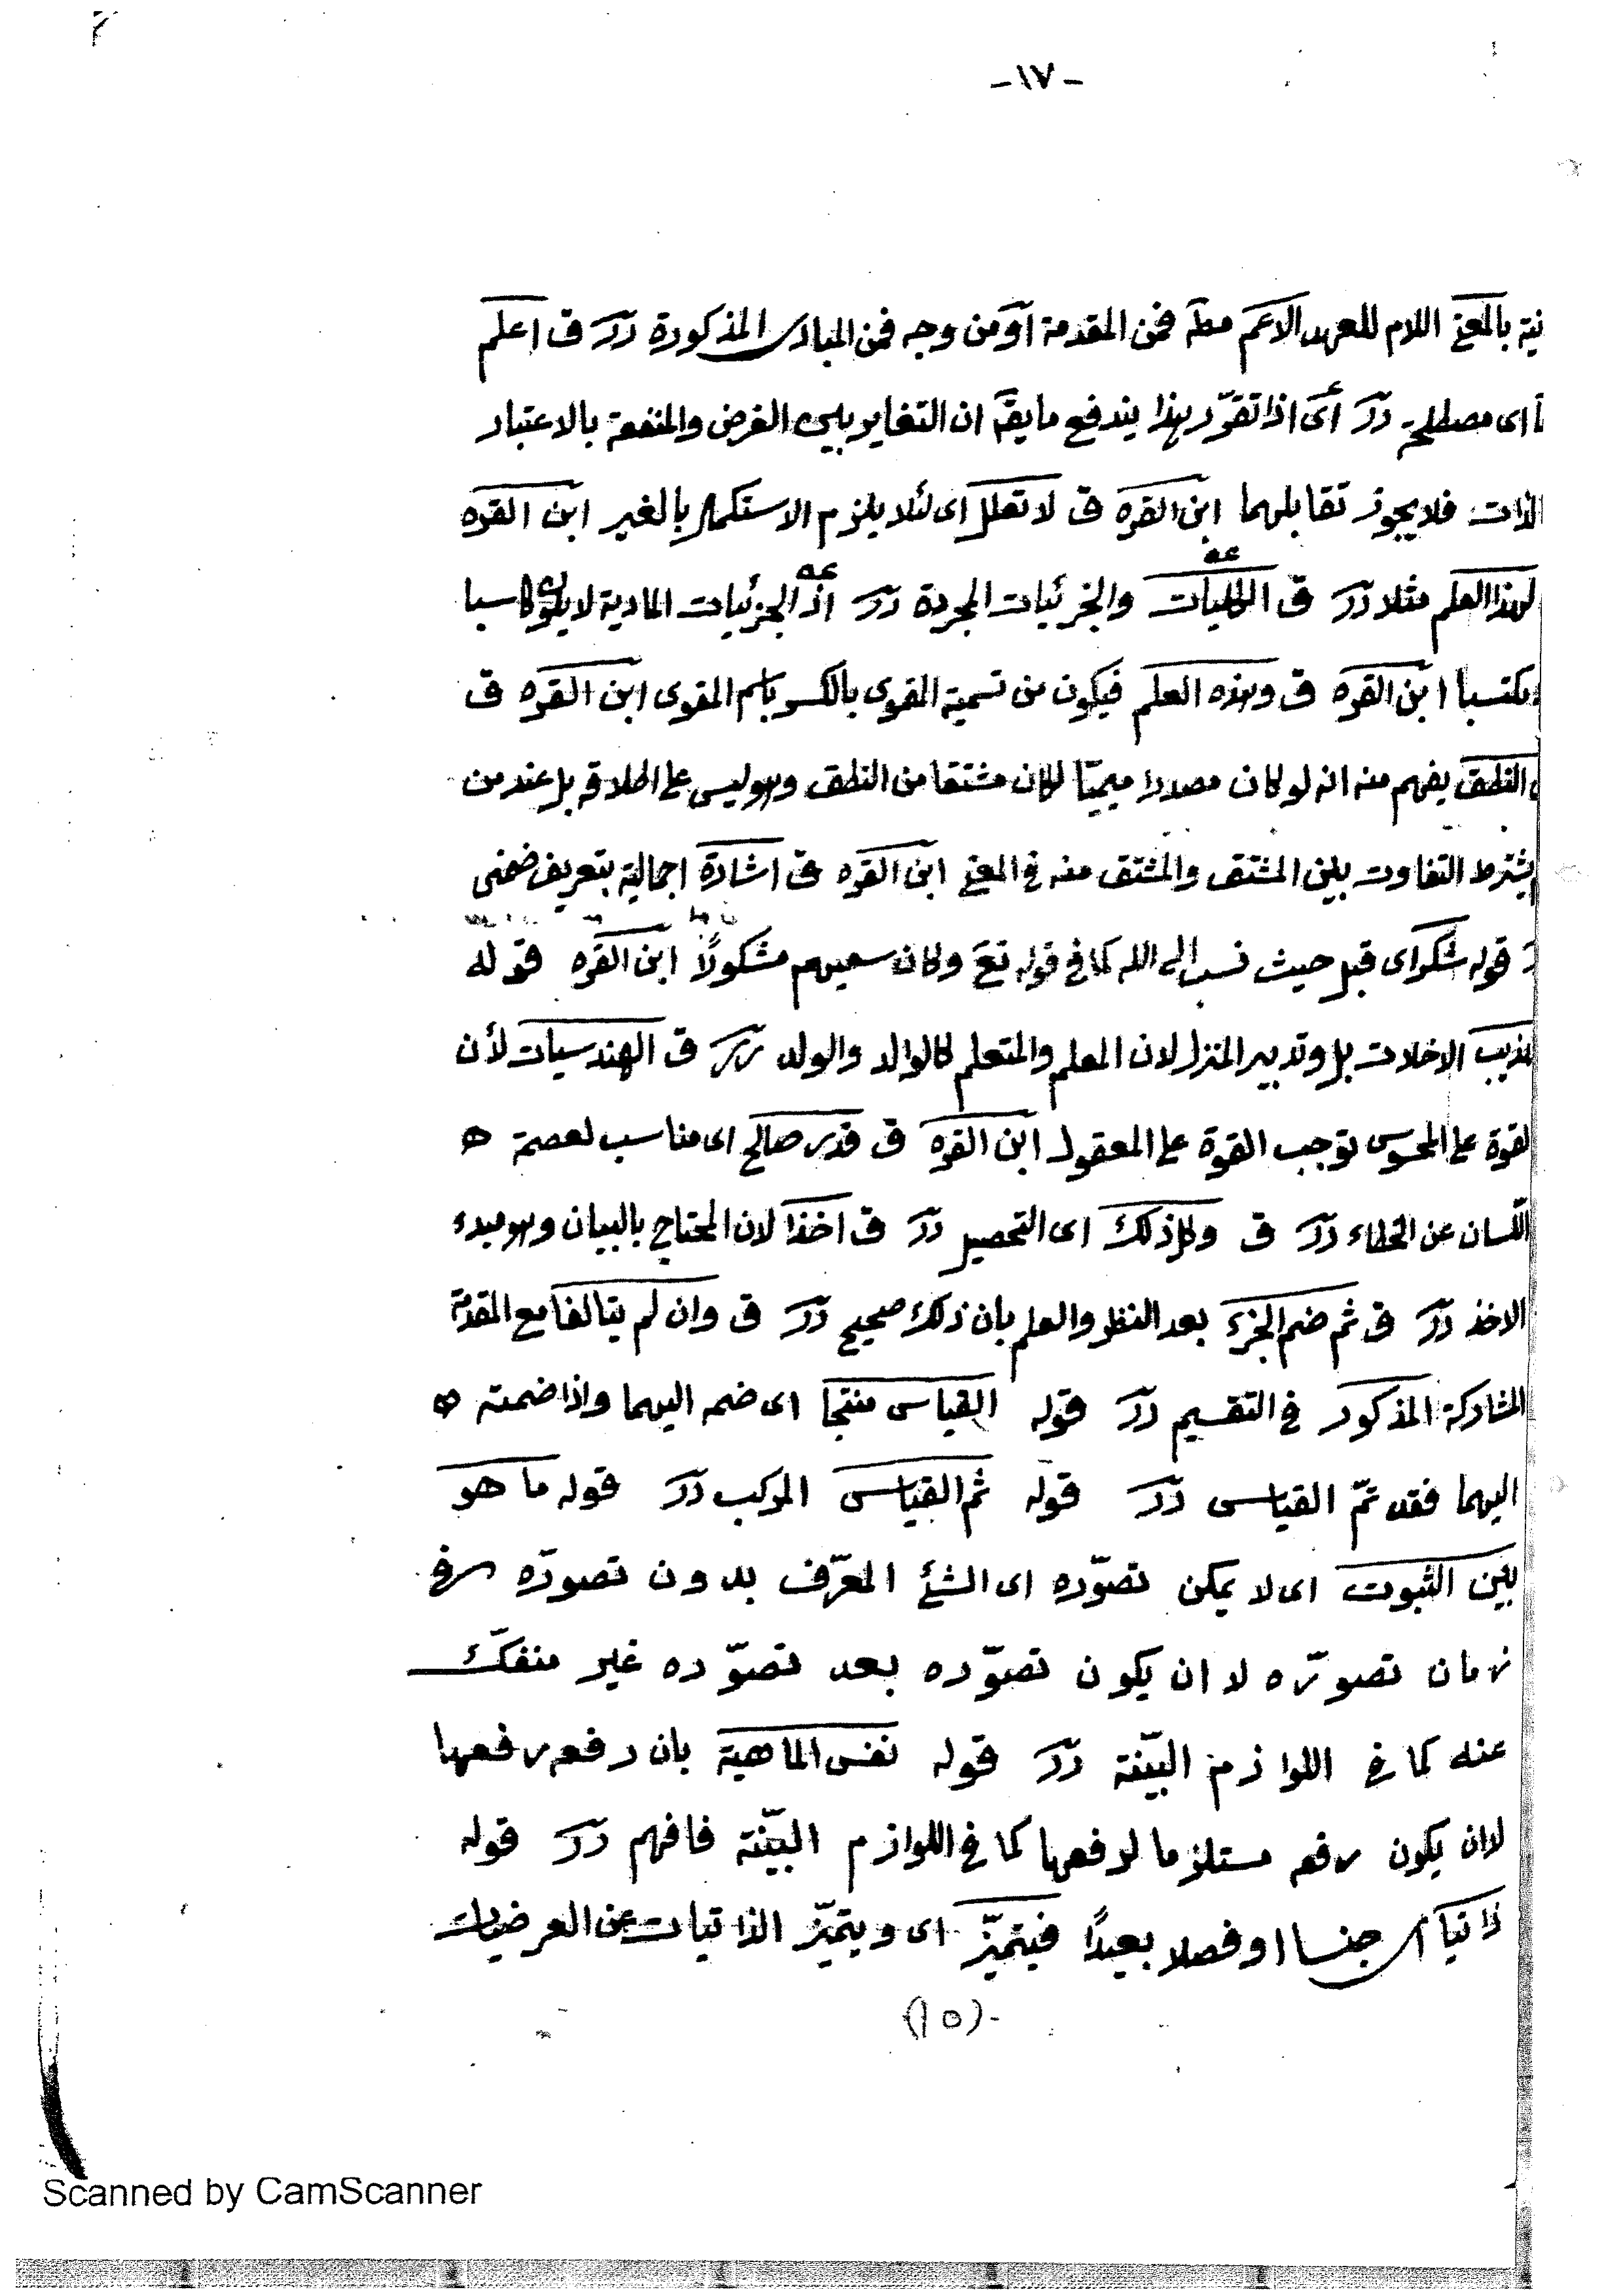 -١٧-
نية بالمعنى اللام للعهد الاعم مطـ فمن المقدمة او من وجه فمن المبادى المذكورة رر ق اعلم
اى مصطلحة رر اى اذا تقرر بهذا يندفع ما يقـ ان التغاير بين الغرض والمنفعة بالاعتبار
الذات فلا يجوز تقابلهما ابن القره ق لا تعلل اى لئلا يلزم الاستكمال بالغير ابن القره
لهذا العلم مثلا رر ق الكليات والجزئيات المجردة رر اذ الجزئيات المادية لا يكون كاسبا
مكتسبا ابن القره ق وهذه العلم فيكون من تسمية المقوى بالكسر باسم المقوى ابن القره ق
النطق يفهم منه انه لو كان مصدرا ميميّا لكان مشتقا من النطق وهو ليس على اطلاقه بل عند من
يشترط التفاوت بين المشتق والمشتق منه فى المعنى ابن القره ق اشارة اجمالية بتعريف ضمنى
قوله شكر اى قبل حيث نسب الى الله كما فى قوله تع وكان سعيهم مشكورًا ابن القره قوله
تهذيب الاخلاق بل وتدبير المنزل لان المعلم والمتعلم كالوالد والولد رر ق الهندسيات لأن
القوة على المحسوس توجب القوة على المعقول ابن القره ق قدر صالح اى مناسب لعصمة ه
اللسان عن الخطاء رر ق وكل ذلك اى التحصيل رر ق اخذا لان المحتاج بالبيان وهو مبدء
الاخذ رر ق ثم ضم الجزء بعد النظر والعلم بان ذلك صحيح رر ق وان لم يتالفا مع المقدمة
المشاركة المذكور فى التقسيم رر قوله القياس منتجا اى ضمه اليهما واذا ضمته ه
اليهما فقد تمّ القياس رر قوله ثم القياس المركب رر قوله ما هو
بين الثبوت اى لا يمكن تصوّره اى الشئ المعرّف بدون تصوره فى
زمان تصوّره لا ان يكون تصوّره بعد تصوّره غير منفكّ
عنه كما فى اللوازم البيّنة رر قوله نفس الماهية بان رفعه رفعها
لا ان يكون رفعه مستلزما لرفعها كما فى اللوازم البيّنة فافهم رر قوله
ذاتيا اى جنسا او فصلا بعيدًا فيتميّز اى ويتميّز الذاتيات عن العرضيات
(١٥)-
Scanned by CamScanner